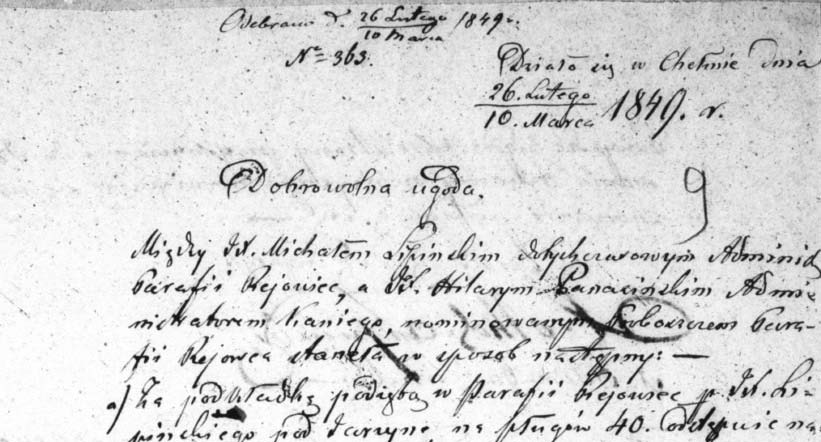 Odebrano d. 26 Lutego / 10 Marca 1849 r.
No 363.
Działo się w Chełmie dnia
26. Lutego / 10. Marca 1849. r.
Dobrowolna ugoda.
9
Między JX. Michałem Lipińskim dotychczasowym Admini
Parafii Rejowiec, a JX. Hilarym Panasińskim Admi-
nistratorem Kaniego, nominowanym Proboszczem Para-
fii Rejowca stanęła w sposób następny: —
a) Za podkładkę podiębą w Parafii Rejowiec p. JX. Li-
pińskiego pod Jarzynę na pługów 40. odstępuie